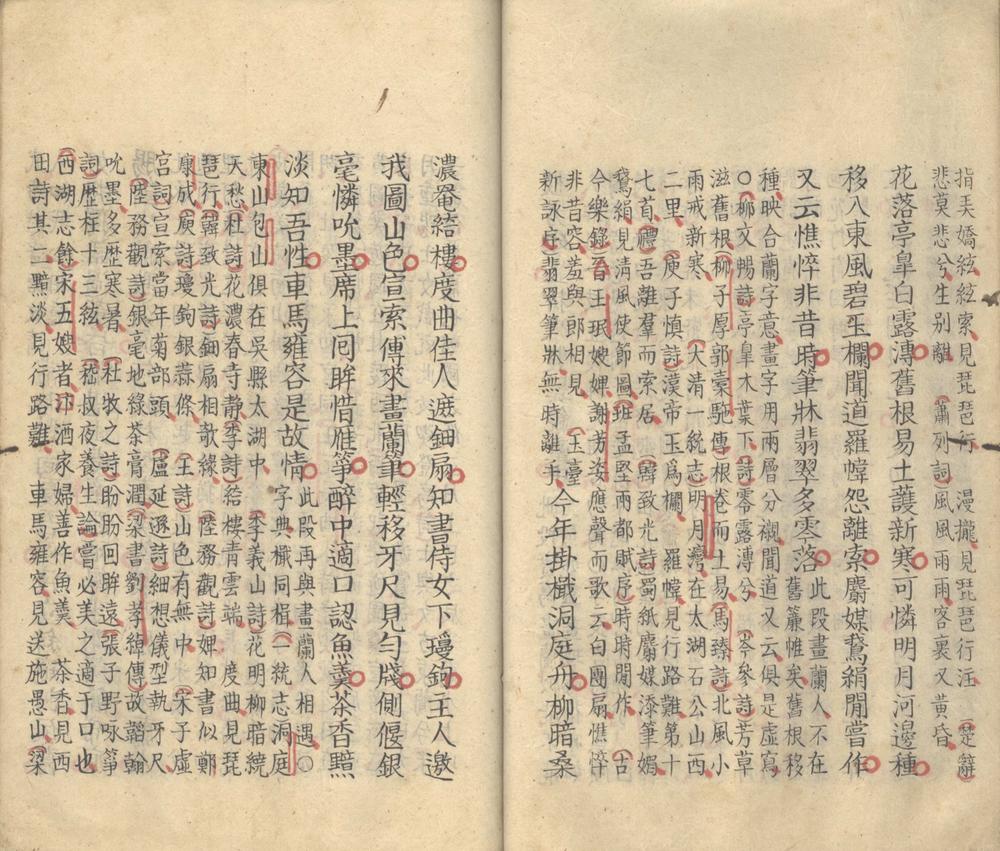 指天嬌絃絃索見琵琶行 漫攏見琵琶行注 楚辭
悲莫悲兮生別離 蕭列詞風風雨雨客裏又黃昏
花落亭皐白露漙舊根易土護新寒可憐明月河邊種
移入東風碧玉欄聞道羅幃怨離索麝媒鵞絹閒嘗作
又云憔悴非昔時筆牀翡翠多零落
此段畫蘭人不在
舊簾惟矣舊根移
種映合蘭字意畫字用兩層分襯聞道又云俱是虛寫
○柳文暢詩亭皐木葉下 詩零露漙兮 岑參詩芳草
滋舊根 柳子厚郭橐駞傳根卷而土易 馬臻詩北風小
雨戒新寒 大清一統志明月灣在太湖石公山西
二里 庾子慎詩漢帝玉爲欄 羅幃見行路難第十
七首 禮吾離羣而索居 韓致光詩蜀紙麝媒添筆媚
鵞絹見清風使節圖 班孟堅兩都賦序時時閒作 古
今樂錄晉王珉嫂婢謝芳姿應聲而歌云白團扇憔悴
非昔容羞與郎相見 玉臺
新詠序翡翠筆牀無時離手
今年掛檝洞庭舟柳暗桑
濃罨綺樓度曲佳人遮鈿扇知書侍女下瓊鉤主人邀
我圖山色宣索傳來畫蘭筆輕移牙尺見勻牋側偃銀
毫憐吮墨席上回眸惜雁箏醉中適口認魚羹茶香黯
淡知吾性車馬雍容是故情
此段再與畫蘭人相遇○
字典檝同楫 一統志洞庭
東山包山俱在吳縣太湖中 李義山詩花明柳暗繞
天愁 杜詩花濃春寺靜 李詩結樓青雲端 度曲見琵
琶行 韓致光詩鈿扇相欹綠 陸務觀詩婢知書似鄭
康成 庾詩瓊鉤銀蒜條 王詩山色有無中 宋子虛
宮詞宣索當年菊部頭 盧延遜詩細想儀型執牙尺
陸務觀詩銀毫地綠茶膏潤 梁書劉孝綽傳故韜翰
吮墨多歷寒暑 杜牧之詩盼盼回眸遠 張子野咏箏
詞歷柱十三絃 嵇叔夜養生論嘗必美之適于口也
西湖志餘宋五嫂者汴酒家婦善作魚羹 茶香見西
田詩其二黯淡見行路難 車馬雍容見送施愚山 梁